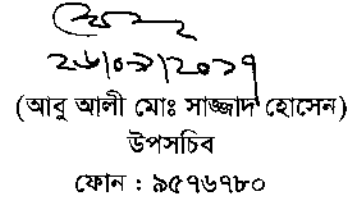 ২৬|০৯|২০১৭
(আবু আলী মোঃ সাজ্জাদ হোসেন)
উপসচিব
ফোন : ৯৫৭৬৭৮০